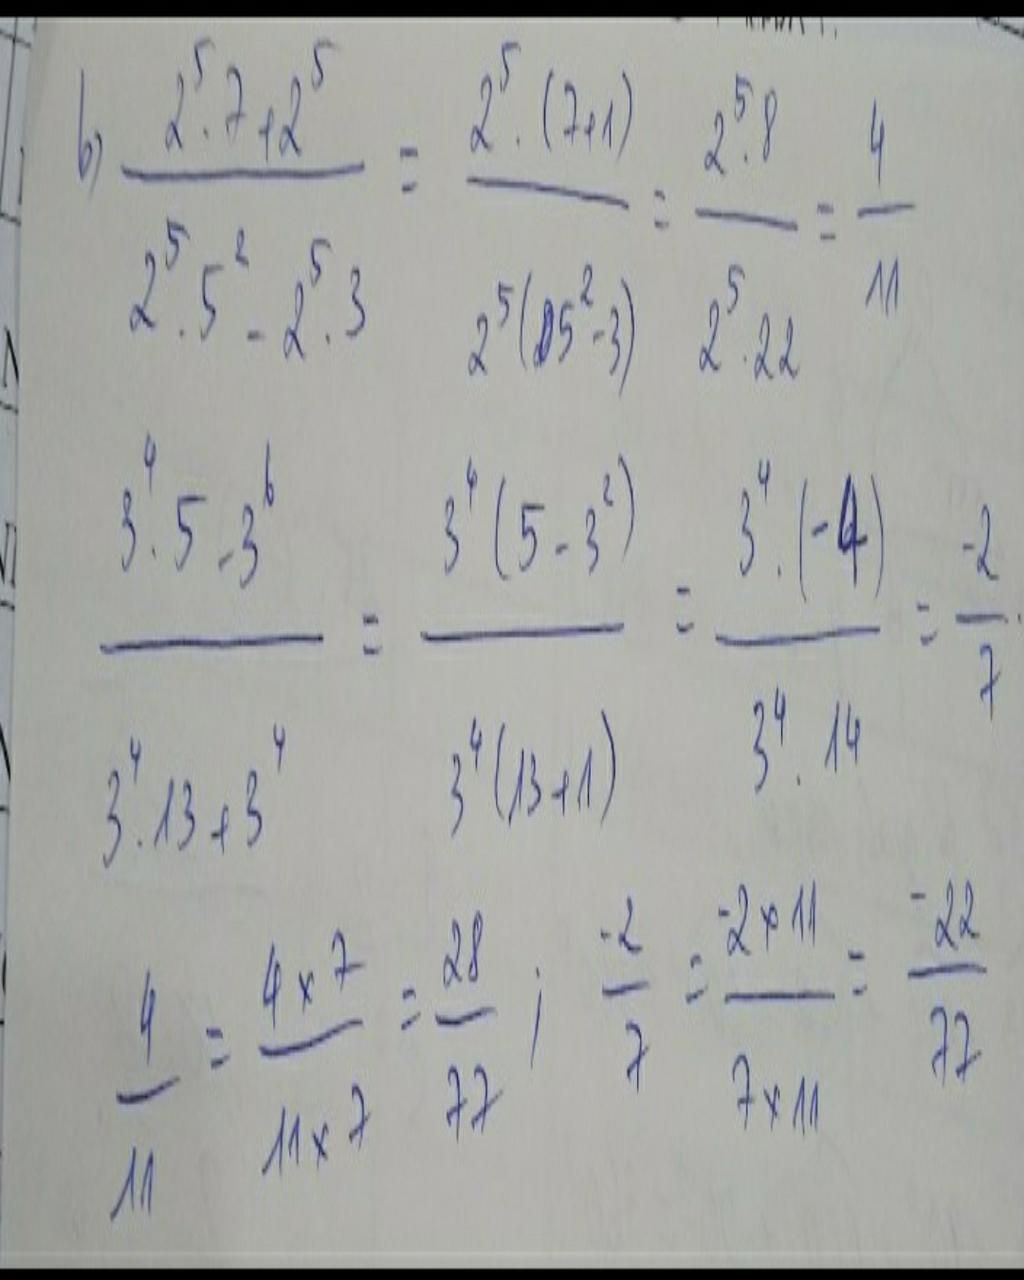 b) \frac{2^5 . 7 + 2^5}{2^5 . 5^2 - 2^5 . 3} = \frac{2^5 . (7+1)}{2^5 (5^2 - 3)} = \frac{2^5 . 8}{2^5 . 22} = \frac{4}{11}
\frac{3^4 . 5 - 3^6}{3^4 . 13 + 3^4} = \frac{3^4 (5 - 3^2)}{3^4 (13+1)} = \frac{3^4 . (-4)}{3^4 . 14} = \frac{-2}{7}
\frac{4}{11} = \frac{4 × 7}{11 × 7} = \frac{28}{77} ; \frac{-2}{7} = \frac{-2 × 11}{7 × 11} = \frac{-22}{77}